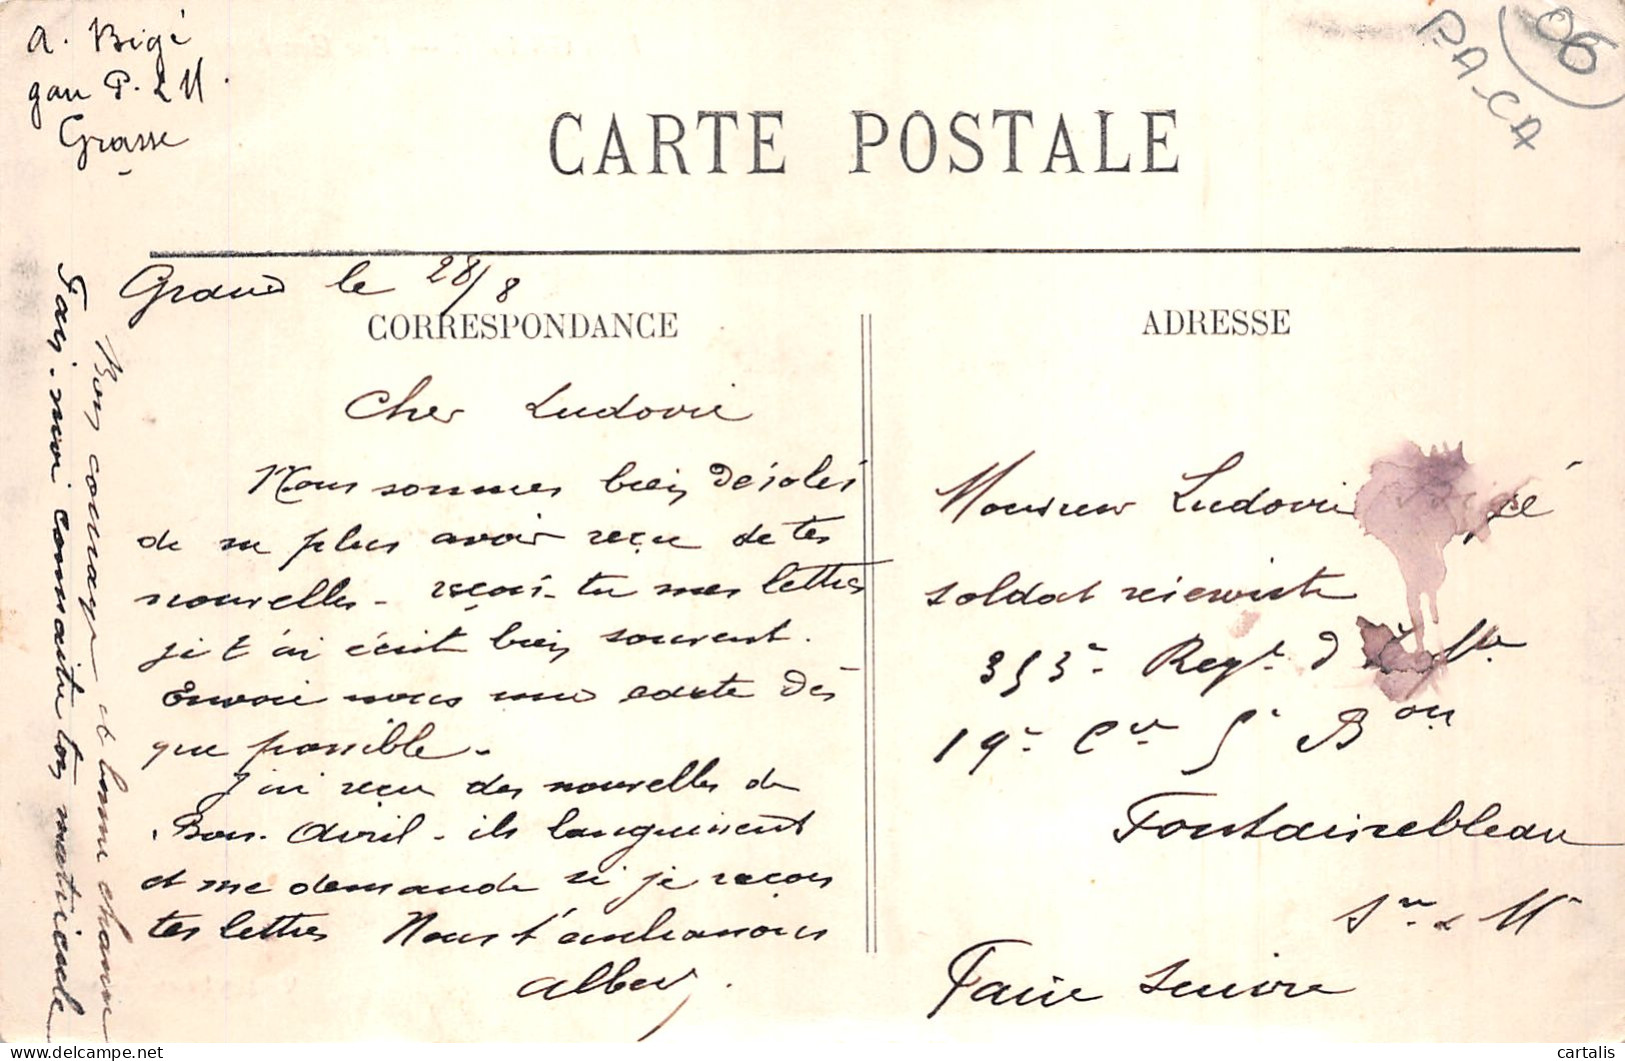 a. Bigé
gare P. L M.
Grasse
06
PACA
CARTE POSTALE
le 28/8
CORRESPONDANCE
Cher Ludovic
Nous sommes bien désolés
de ne plus avoir reçu de tes
nouvelles - reçois-tu mes lettres
je t'ai écrit bien souvent.
Envoie nous une carte dès
que possible -
J'ai reçu des nouvelles de
Bon. Avril - ils languissent
et me demande si je reçois
tes lettres Nous t'embrassons
Albert.
Bon courage et bonne chance
Fais-moi connaitre ton matricule
ADRESSE
Monsieur Ludovic Bigé
soldat réserviste
353e Regt d'Ifie
19e Cie 5e Bon
Fontainebleau
S. & M
Faire suivre
cartalis